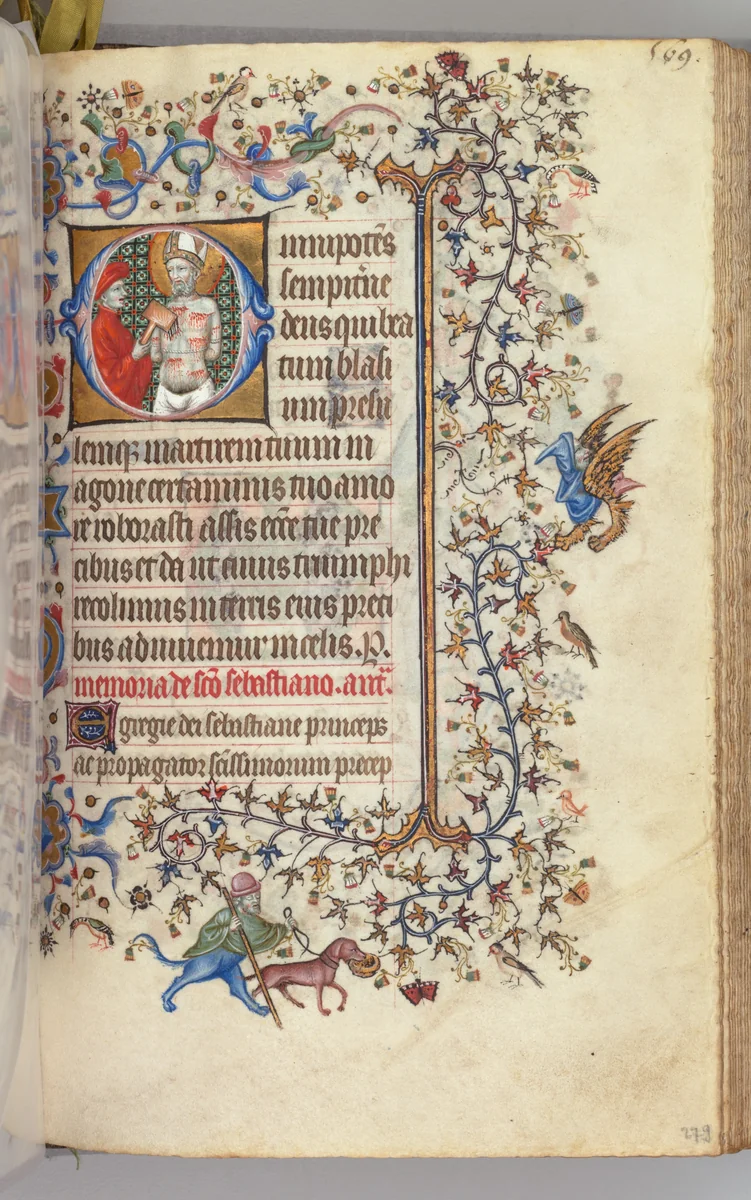 569.
Omnipotēs
sempitn̄e
deus qui bea
tum blasi
um presu
lemqꝫ martirem tuum in
agone certaminis tuo amo
re roborasti assis ecc̄e tue pre
cibus et da ut cuius triumphi
recolimus in terris eius preci
bus adiuuemur in celis. P.
memoria de sc̄o sebastiano. ant̄.
Egregie dei sebastiane princeps
ac propagator sc̄issimorum precep
279